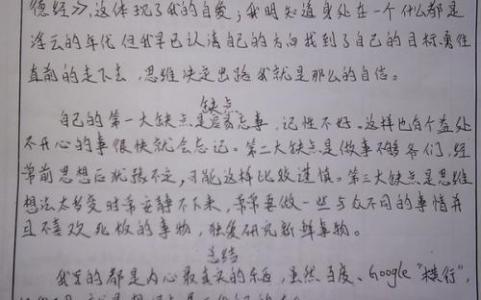 德经》，这体现了我的自爱；我明知道身处在一个什么都是
浮云的年代，但我早已认清自己的方向找到了自己的目标，勇往
直前的走下去，思维决定出路我就是那么的自信。
缺点
自己的第一大缺点是容易忘事，记性不好。这样也有个益处
不开心的事很快就会忘记。第二大缺点是做事不够爷们，经
常前思想后犹豫不定，可能这样比较谨慎。第三大缺点是思维
想法太多变时常安静不下来，常常要做一些与众不同的事情并
且不喜欢死板的事物，独爱研究新鲜事物。
总结
我写的都是内心最真实的东西，虽然百度、Google"横行"，